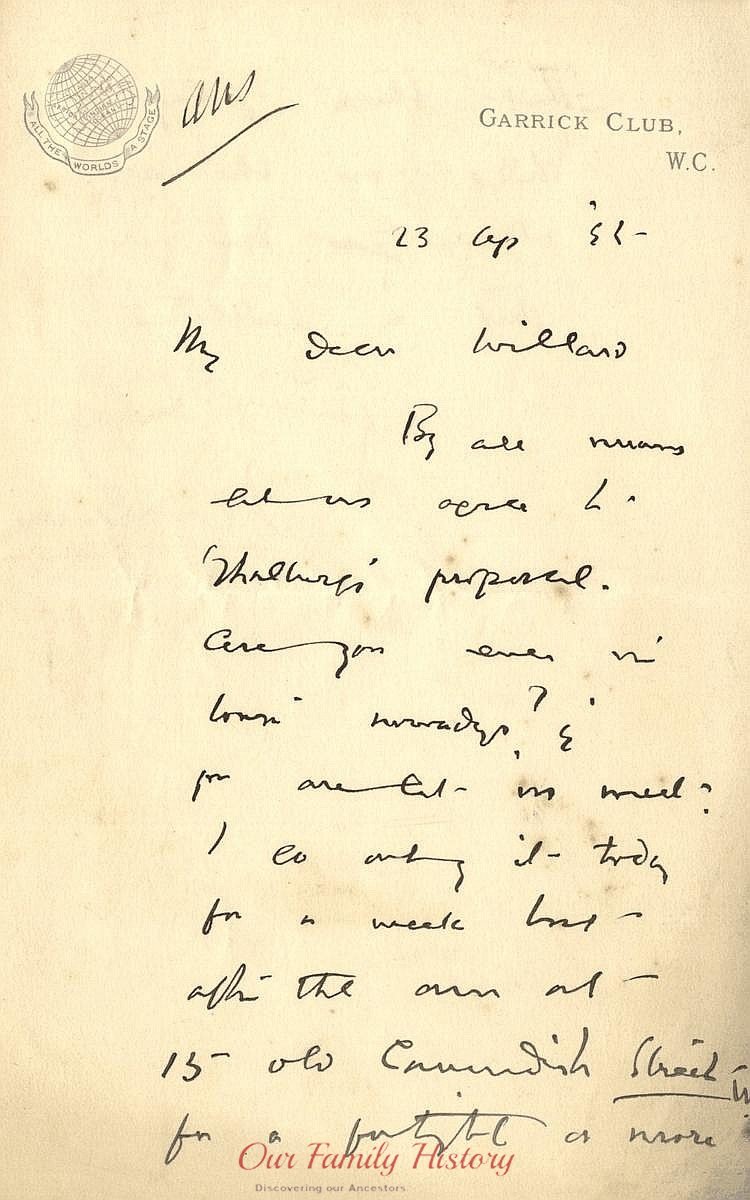 ALL THE WORLDS A STAGE
ans
GARRICK CLUB,
W.C.
23 Ap
My dear Willard
By all means
let us agree to
Thalberg's proposal.
Are you ever in
town nowadays? &
are let us meet?
I go out of it today
for a week but
after the am at
15 Old Cavendish Street
for a fortnight or more
Our Family History
Discovering our Ancestors